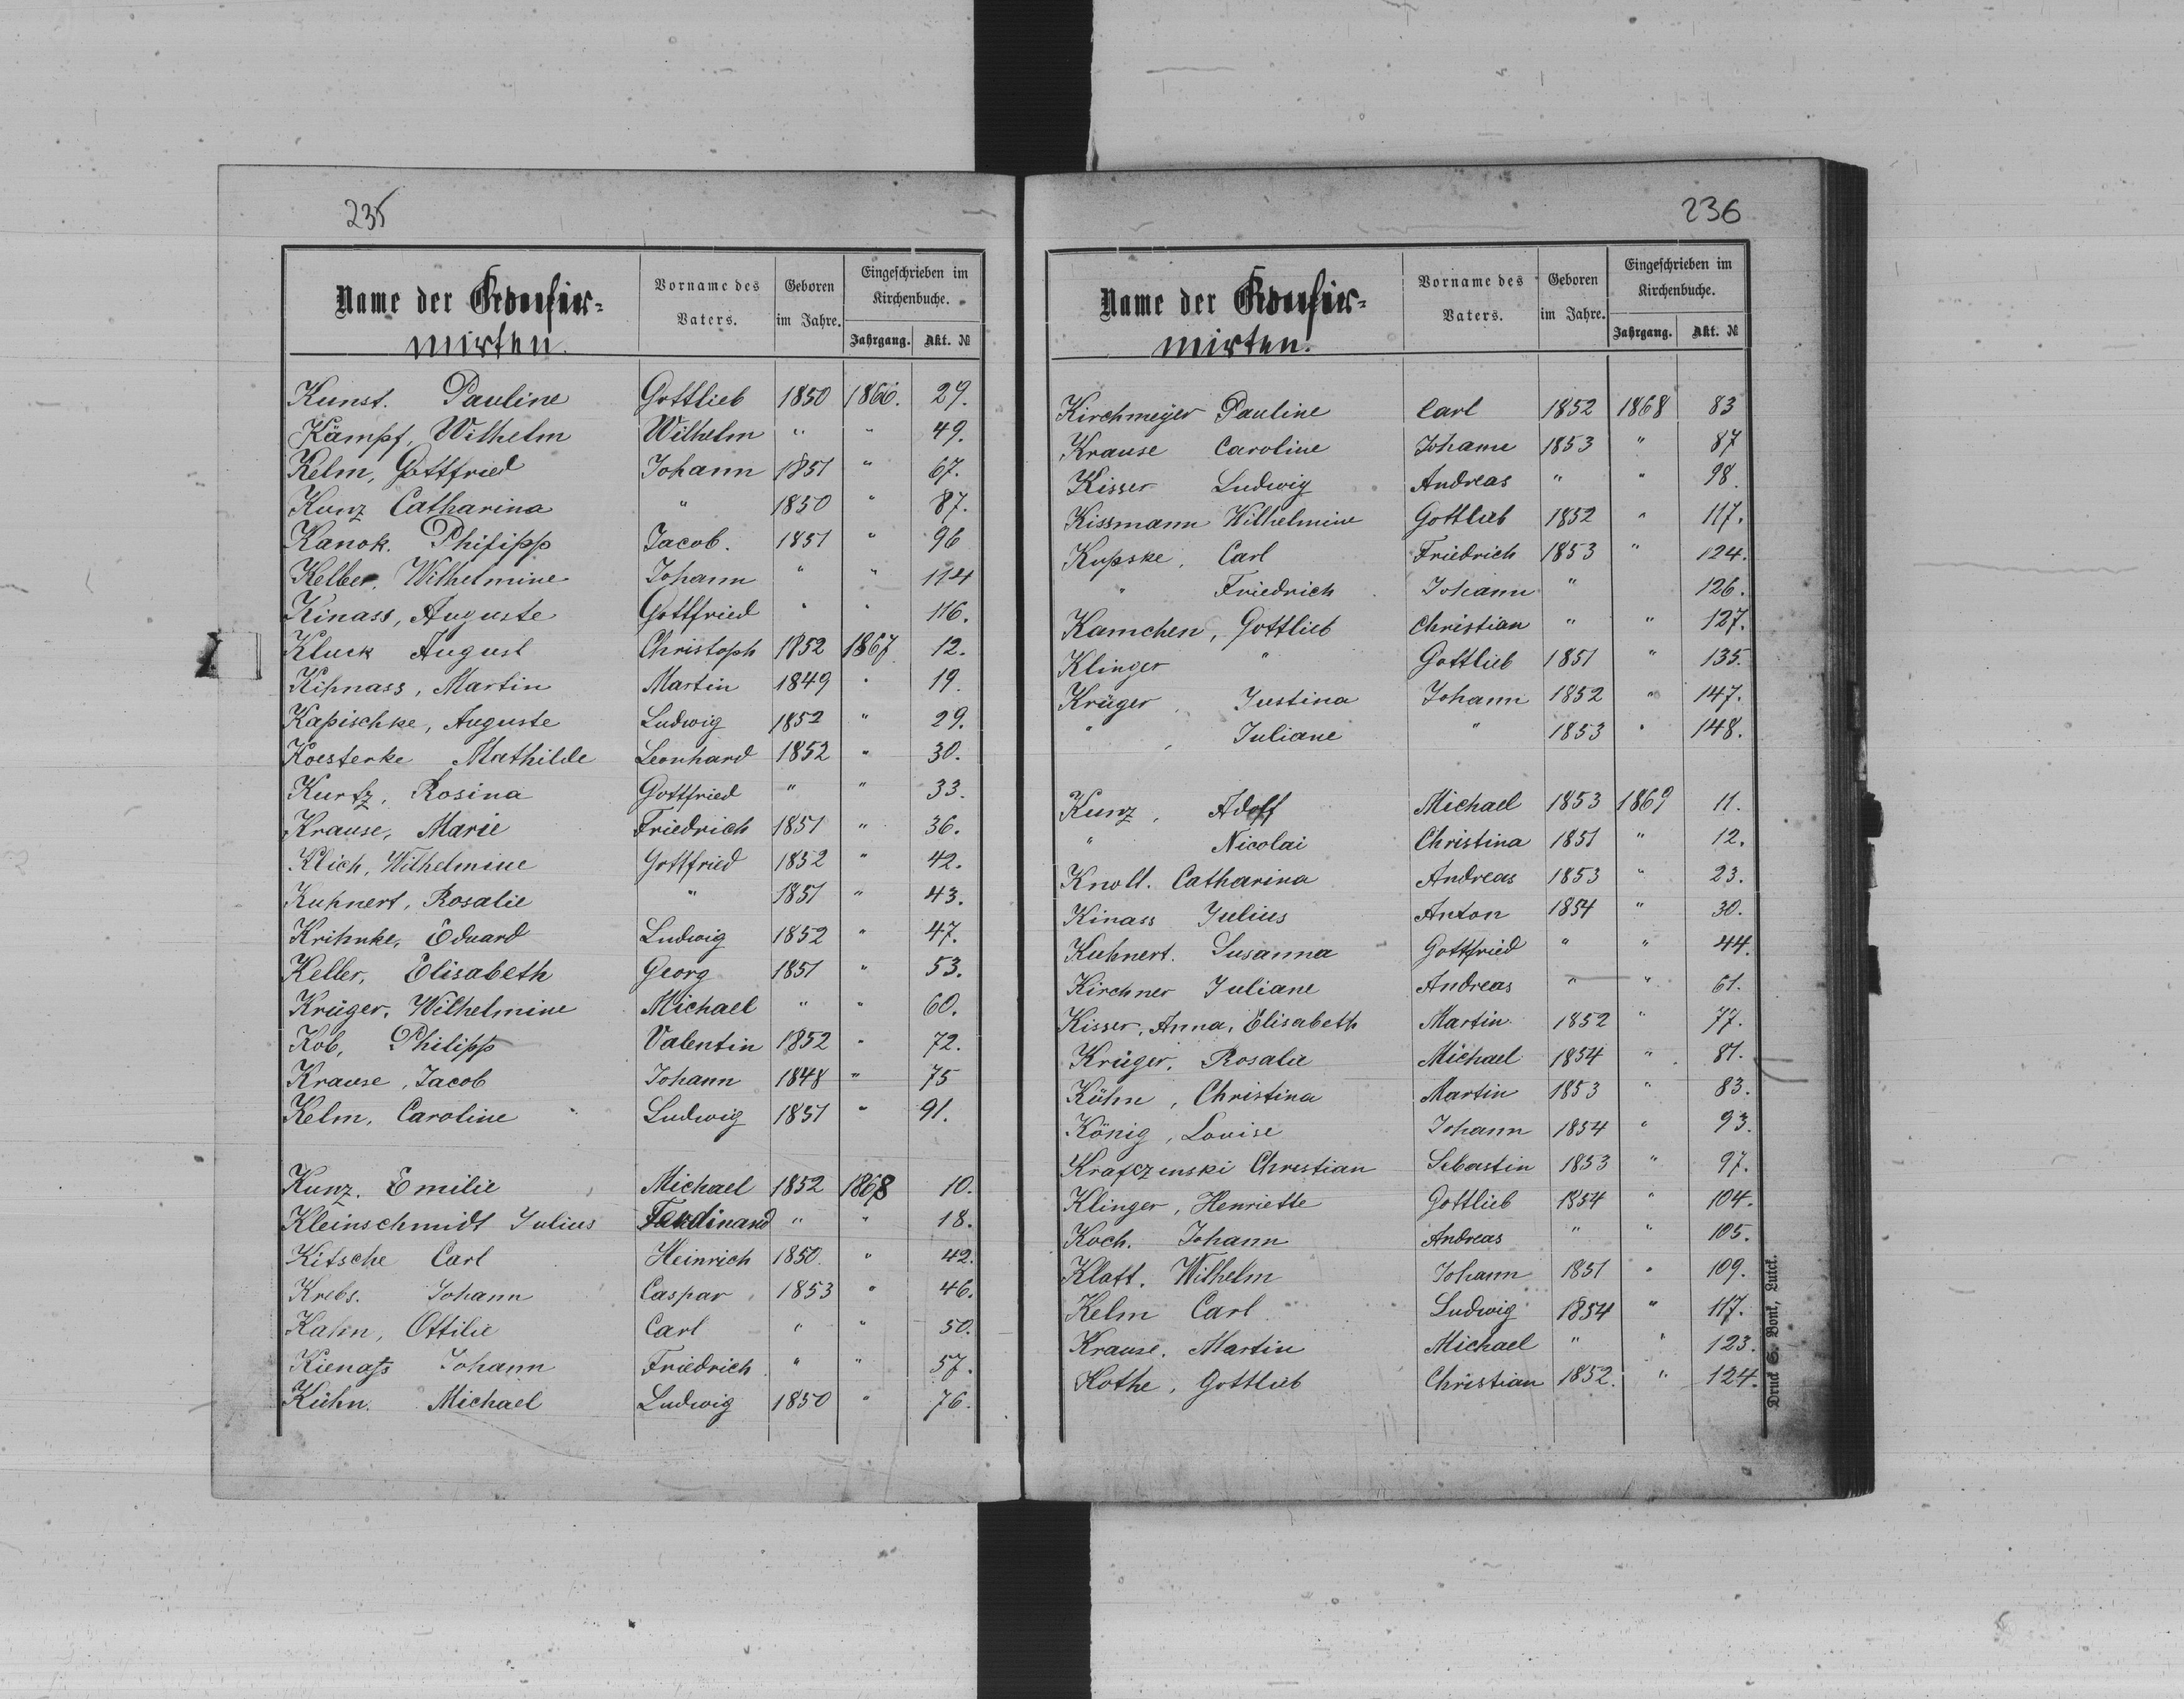 235
Name der Konfir-
mirten.
Vorname des Vaters.
Geboren im Jahre.
Eingeschrieben im Kirchenbuche.
Jahrgang. Akt. №
Kunst. Pauline Gottlieb 1850 1866. 29.
Kämpf, Wilhelm Wilhelm " " 49.
Kelm, Gottfried Johann 1851 " 67.
Kunz Catharina " 1850 " 87.
Kanok. Philipp Jacob. 1851 " 96
Kelber, Wilhelmine Johann " " 114
Kinass, Auguste Gottfried " " 116.
Kluck August Christoph 1852 1867 12.
Kihnass, Martin Martin 1849 " 19.
Kapischke, Auguste Ludwig 1852 " 29.
Koesterke Mathilde Leonhard 1852 " 30.
Kurtz, Rosina Gottfried " " 33.
Krause, Marie Friedrich 1851 " 36.
Klich, Wilhelmine Gottfried 1852 " 42.
Kuhnert, Rosalie " 1851 " 43.
Krihnke, Eduard Ludwig 1852 " 47.
Keller, Elisabeth Georg 1851 " 53.
Krüger, Wilhelmine Michael " " 60.
Kob, Philipp Valentin 1852 " 72.
Krause, Jacob Johann 1848 " 75
Kelm, Caroline Ludwig 1851 " 91.
Kunz. Emilie Michael 1852 1868 10.
Kleinschmidt Julius Ferdinand " " 18.
Kitsche Carl Heinrich 1850. " 42.
Krebs. Johann Caspar 1853 " 46.
Kahn, Ottilie Carl " " 50.
Kienaſs Johann Friedrich " " 57.
Kühn. Michael Ludwig 1850 " 76.
236
Name der Konfir-
mirten.
Vorname des Vaters.
Geboren im Jahre.
Eingeschrieben im Kirchenbuche.
Jahrgang. Akt. №
Kirchmeyer Pauline Carl 1852 1868 83
Krause Caroline Johann 1853 " 87
Kisser Ludwig Andreas " " 98.
Kissmann Wilhelmine Gottlieb 1852 " 117.
Kupske, Carl Friedrich 1853 " 124.
" Friedrich Johann " 126.
Kamchen, Gottlieb Christian " " 127.
Klinger " Gottlieb 1851 " 135.
Krüger Justina Johann 1852 " 147.
" , Juliane " 1853 " 148.
Kunz, Adolf Michael 1853 1869 11.
" Nicolai Christina 1851 " 12.
Knoll. Catharina Andreas 1853 " 23.
Kinass Julius Anton 1854 " 30.
Kuhnert. Susanna Gottfried " " 44.
Kirchner Juliane Andreas " " 61.
Kisser, Anna, Elisabeth Martin 1852 " 77.
Krüger, Rosalie Michael 1854 " 81.
Kühn, Christina Martin 1853 " 83.
König, Louise Johann 1854 " 93.
Krafczenski Christian Sebastin 1853 " 97.
Klinger, Henriette Gottlieb 1854 " 104.
Koch. Johann Andreas " " 105.
Klatt. Wilhelm Johann 1851 " 109.
Kelm Carl Ludwig 1854 " 117.
Krause. Martin Michael " " 123.
Kothe, Gottlieb Christian 1852. " 124.
Druck S. Bonk, Lutck.